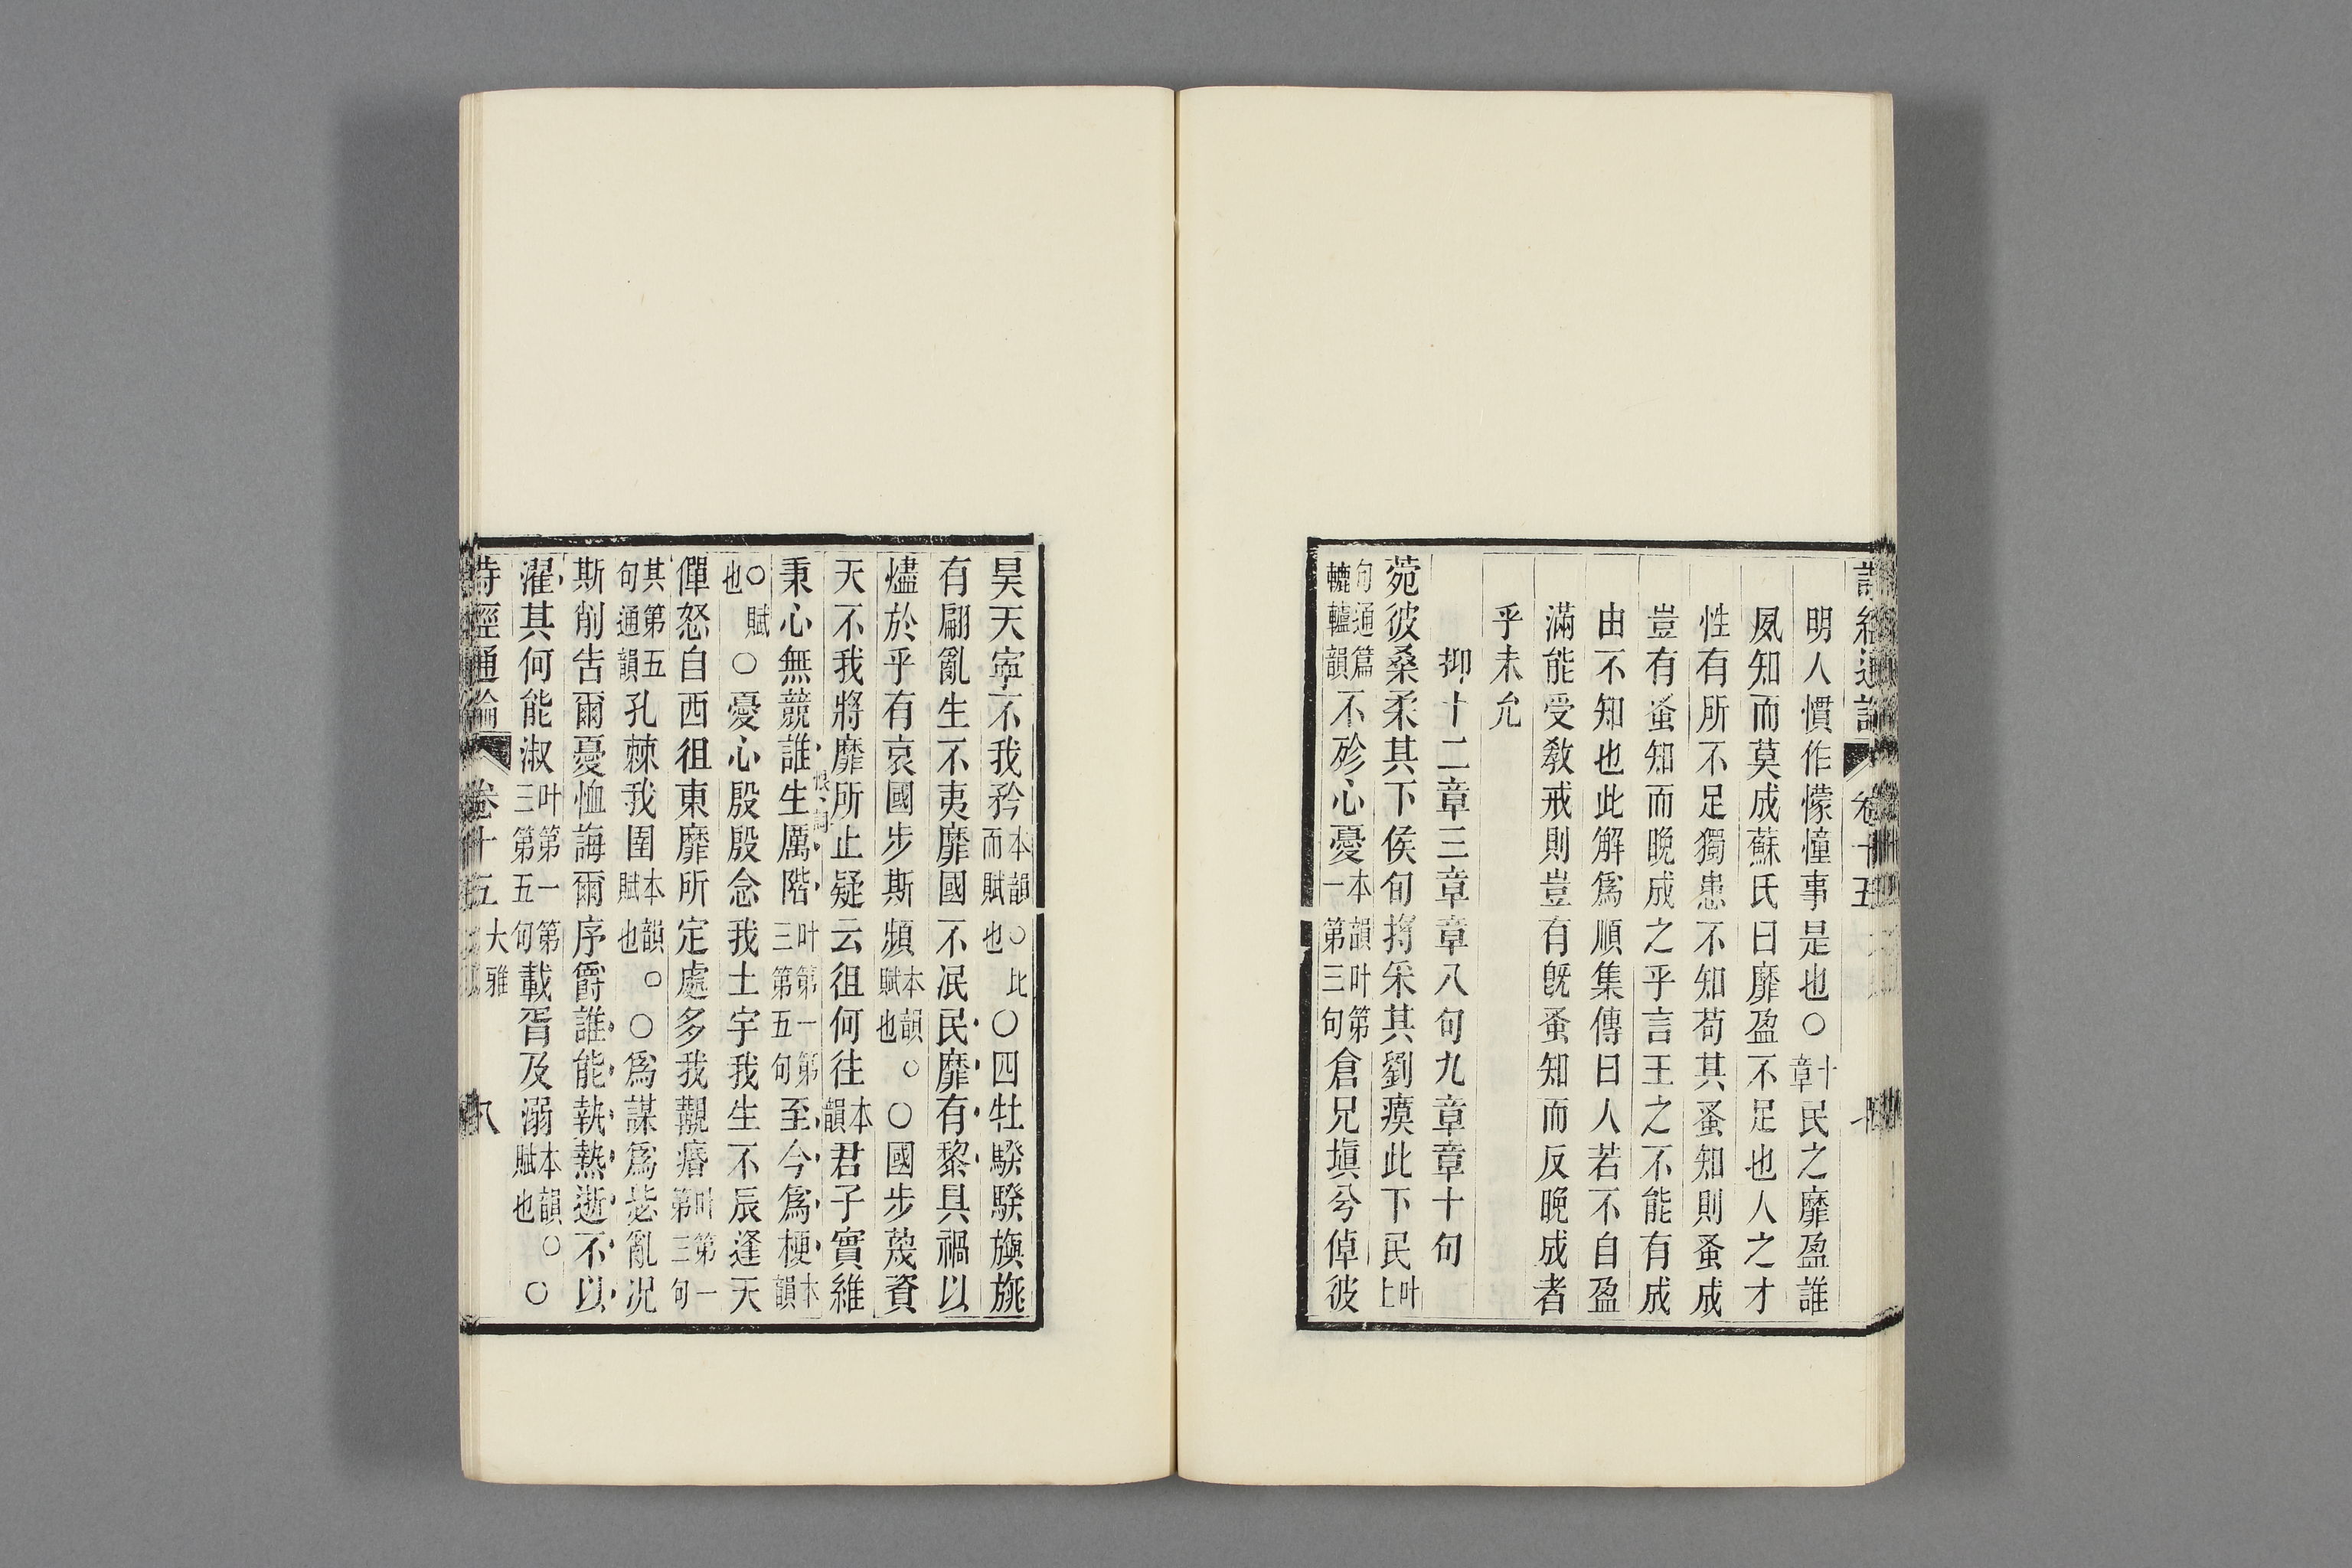 明人慣作懞憧事是也〇十章民之靡盈誰
夙知而莫成蘇氏曰靡盈不足也人之才
性有所不足獨患不知苟其蚤知則蚤成
豈有蚤知而晚成之乎言王之不能有成
由不知也此解爲順集傳曰人若不自盈
滿能受敎戒則豈有旣蚤知而反晚成者
乎未允
抑十二章三章章八句九章章十句
菀彼桑柔其下侯旬捋采其劉瘼此下民叶上
句通篇轆轤韻不殄心憂本韻叶第一第三句倉兄塡兮倬彼
昊天寧不我矜本韻〇比而賦也〇四牡騤騤旟旐
有翩亂生不夷靡國不泯民靡有黎具禍以
燼於乎有哀國步斯頻本韻〇賦也〇國步蔑資
天不我將靡所止疑云徂何往本韻君子實維
恨詞
秉心無競誰生厲階叶第一第三第五句至今爲梗本韻
〇賦也〇憂心殷殷念我土宇我生不辰逢天
僤怒自西徂東靡所定處多我覯痻叶第一第三句
其第五句通韻孔棘我圉本韻〇賦也〇爲謀爲毖亂況
斯削告爾憂恤誨爾序爵誰能執熱逝不以
濯其何能淑叶第一第三第五句載胥及溺本韻〇賦也〇
詩經通論 卷十五 大雅 八